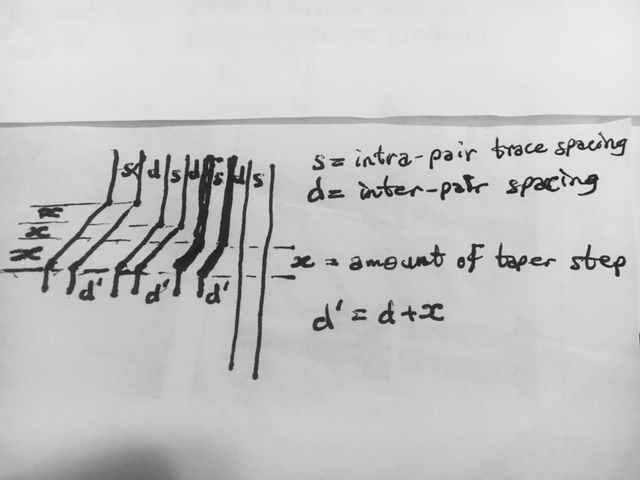 s d s d s d s
s = intra-pair trace spacing
d = inter-pair spacing
x
x
x
x = amount of taper step
d' d' d'
d' = d+x